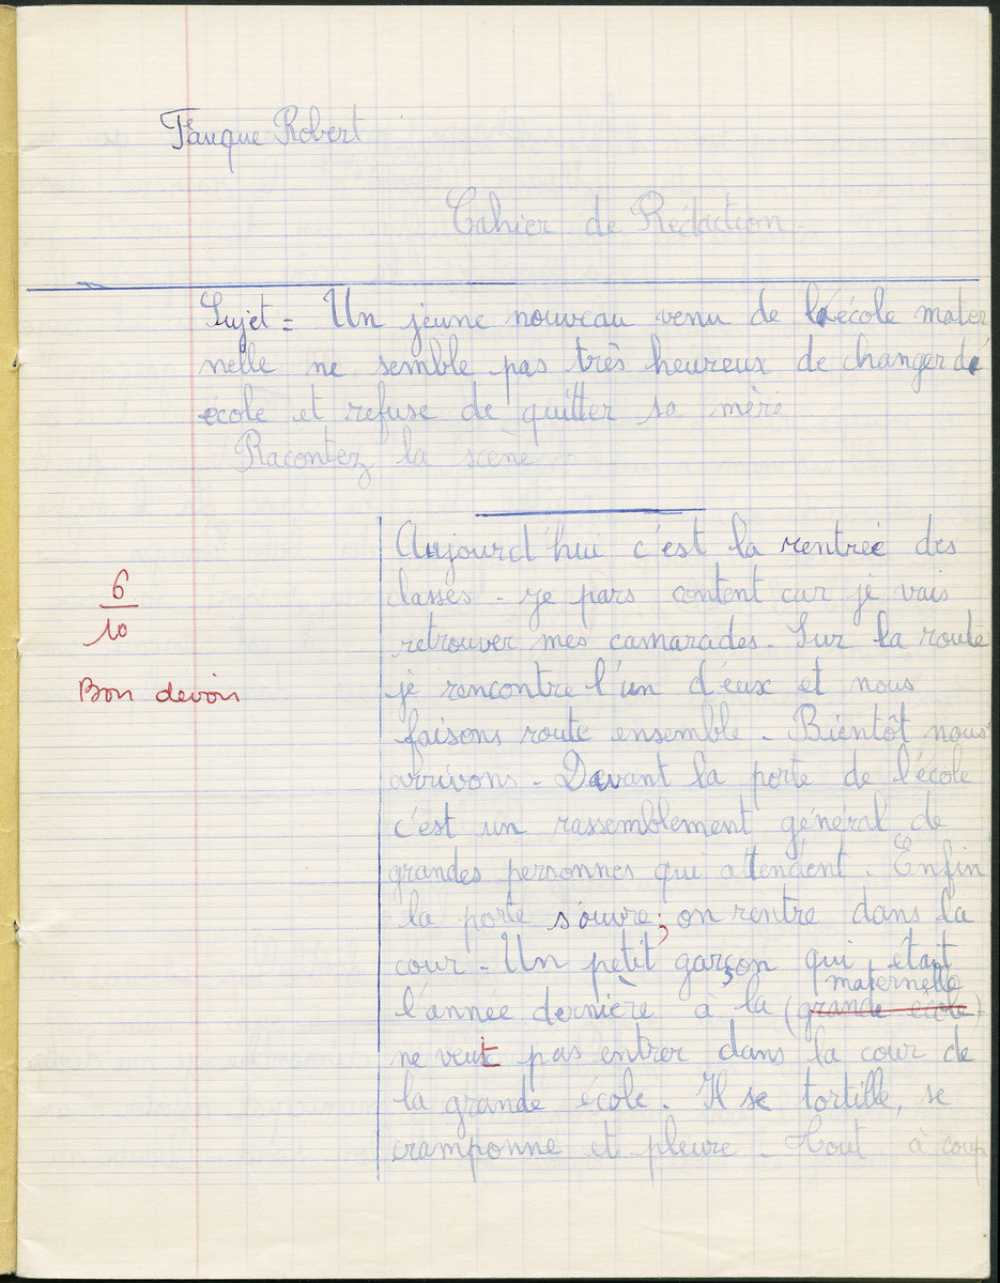 Fauque Robert
Cahier de Rédaction
Sujet = Un jeune nouveau venu de l'école mater
nelle ne semble pas très heureux de changer d'
école et refuse de quitter sa mère
Racontez la scène
6
10
Bon devoir
Aujourd'hui c'est la rentrée des
classes - je pars content car je vais
retrouver mes camarades. Sur la route
je rencontre l'un d'eux et nous
faisons route ensemble. Bientôt nous
arrivons. Devant la porte de l'école
c'est un rassemblement général de
grandes personnes qui attendent. Enfin
la porte s'ouvre ; on rentre dans la
cour. Un petit garçon qui était
maternelle
l'année dernière à la (grande école)
ne veut pas entrer dans la cour de
la grande école. Il se tortille, se
cramponne et pleure. Tout à coup